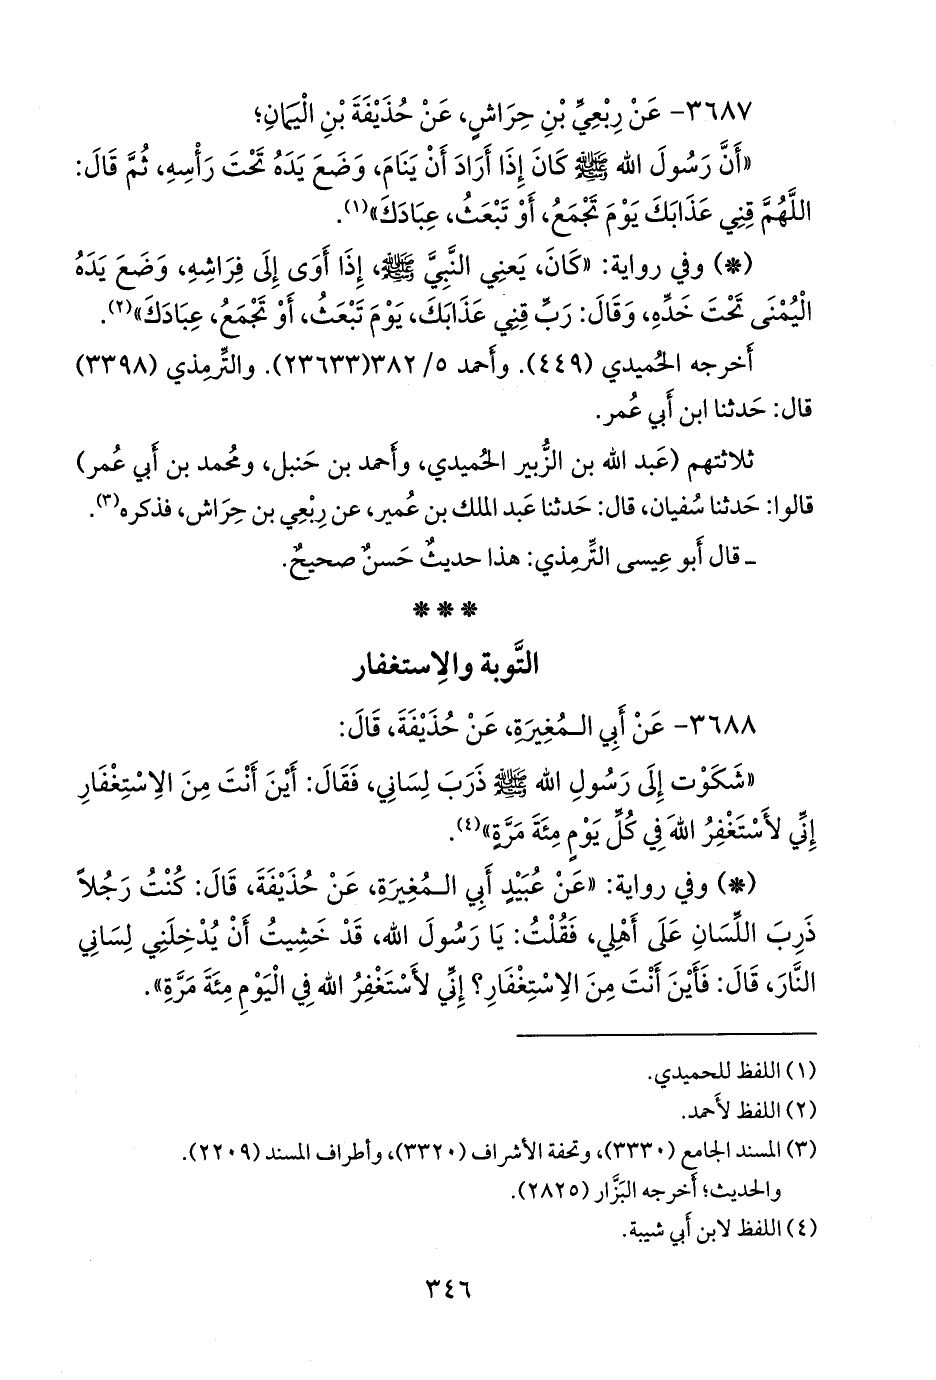 ٣٦٨٧- عَنْ رِبْعِيِّ بْنِ حِرَاشٍ، عَنْ حُذَيْفَةَ بْنِ الْيَمَانِ؛
«أَنَّ رَسُولَ الله ﷺ كَانَ إِذَا أَرَادَ أَنْ يَنَامَ، وَضَعَ يَدَهُ تَحْتَ رَأْسِهِ، ثُمَّ قَالَ:
اللَّهُمَّ قِنِي عَذَابَكَ يَوْمَ تَجْمَعُ، أَوْ تَبْعَثُ، عِبَادَكَ»(١).
(*) وفي رواية: «كَانَ، يَعنِي النَّبِيَّ ﷺ، إِذَا أَوَى إِلَى فِرَاشِهِ، وَضَعَ يَدَهُ
الْيُمْنَى تَحْتَ خَدِّهِ، وَقَالَ: رَبِّ قِنِي عَذَابَكَ، يَوْمَ تَبْعَثُ، أَوْ تَجْمَعُ، عِبَادَكَ»(٢).
أَخرجه الحُميدي (٤٤٩). وأَحمد ٥/ ٣٨٢(٢٣٦٣٣). والتِّرمِذي (٣٣٩٨)
قال: حَدثنا ابن أَبي عُمر.
ثلاثتهم (عَبد الله بن الزُّبير الحُميدي، وأَحمد بن حَنبل، ومُحمد بن أَبي عُمر)
قالوا: حَدثنا سُفيان، قال: حَدثنا عَبد الملك بن عُمير، عن رِبْعِي بن حِرَاش، فذكره(٣).
ـ قال أَبو عِيسى التِّرمِذي: هذا حديثٌ حَسنٌ صحيحٌ.
* * *
التَّوبة والاِستغفار
٣٦٨٨- عَنْ أَبِي الـمُغِيرَةِ، عَنْ حُذَيْفَةَ، قَالَ:
«شَكَوْت إِلَى رَسُولِ الله ﷺ ذَرَبَ لِسَانِي، فَقَالَ: أَيْنَ أَنْتَ مِنَ الاِسْتِغْفَارِ
إِنِّي لأَسْتَغْفِرُ اللهَ فِي كُلِّ يَوْمٍ مِئَةَ مَرَّةٍ»(٤).
(*) وفي رواية: «عَنْ عُبَيْدٍ أَبِي الـمُغِيرَةِ، عَنْ حُذَيْفَةَ، قَالَ: كُنْتُ رَجُلاً
ذَرِبَ اللِّسَانِ عَلَى أَهْلِي، فَقُلْتُ: يَا رَسُولَ الله، قَدْ خَشِيتُ أَنْ يُدْخِلَنِي لِسَانِي
النَّارَ، قَالَ: فَأَيْنَ أَنْتَ مِنَ الاِسْتِغْفَارِ؟ إِنِّي لأَسْتَغْفِرُ الله فِي الْيَوْمِ مِئَةَ مَرَّةٍ».
(١) اللفظ للحميدي.
(٢) اللفظ لأَحمد.
(٣) المسند الجامع (٣٣٣٠)، وتحفة الأشراف (٣٣٢٠)، وأطراف المسند (٢٢٠٩).
والحديث؛ أَخرجه البَزَّار (٢٨٢٥).
(٤) اللفظ لابن أَبي شيبة.
٣٤٦